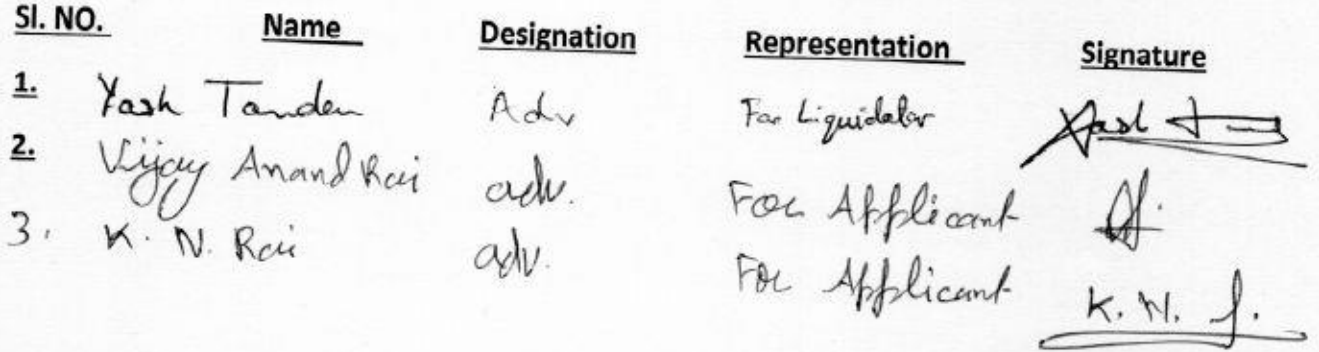 Sl. NO. Name Designation Representation Signature
1. Yash Tanden Adv For Liquidator Yash
2. Vijay Anand Rai adv. For Applicant
3. K. N. Rai adv. For Applicant K. N.